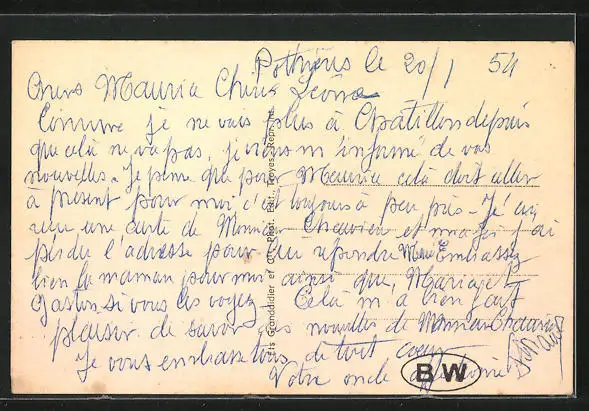 Pothières le 20/1 54
Chers Maurice Chère Léona
Comme je ne vais plus à Chatillon depuis
que cela ne va pas, je viens m'informé de vos
nouvelles. Je pense que pour Maurice cela doit aller
à présent pour moi c'est toujours à peu près. J'ai
reçu une carte de Monsieur et mais j'ai
perdu l'adresse pour lui répondre Embrassez
bien la maman pour moi ainsi que, Maria et
Gaston si vous les voyez. Celà m'a bien fait
plaisir de savoir des nouvelles de Monsieur
Je vous embrasse tous de tout coeur
Votre oncle
BW
Grandidier et Cie, Phot. Edit., Troyes, Reprint.